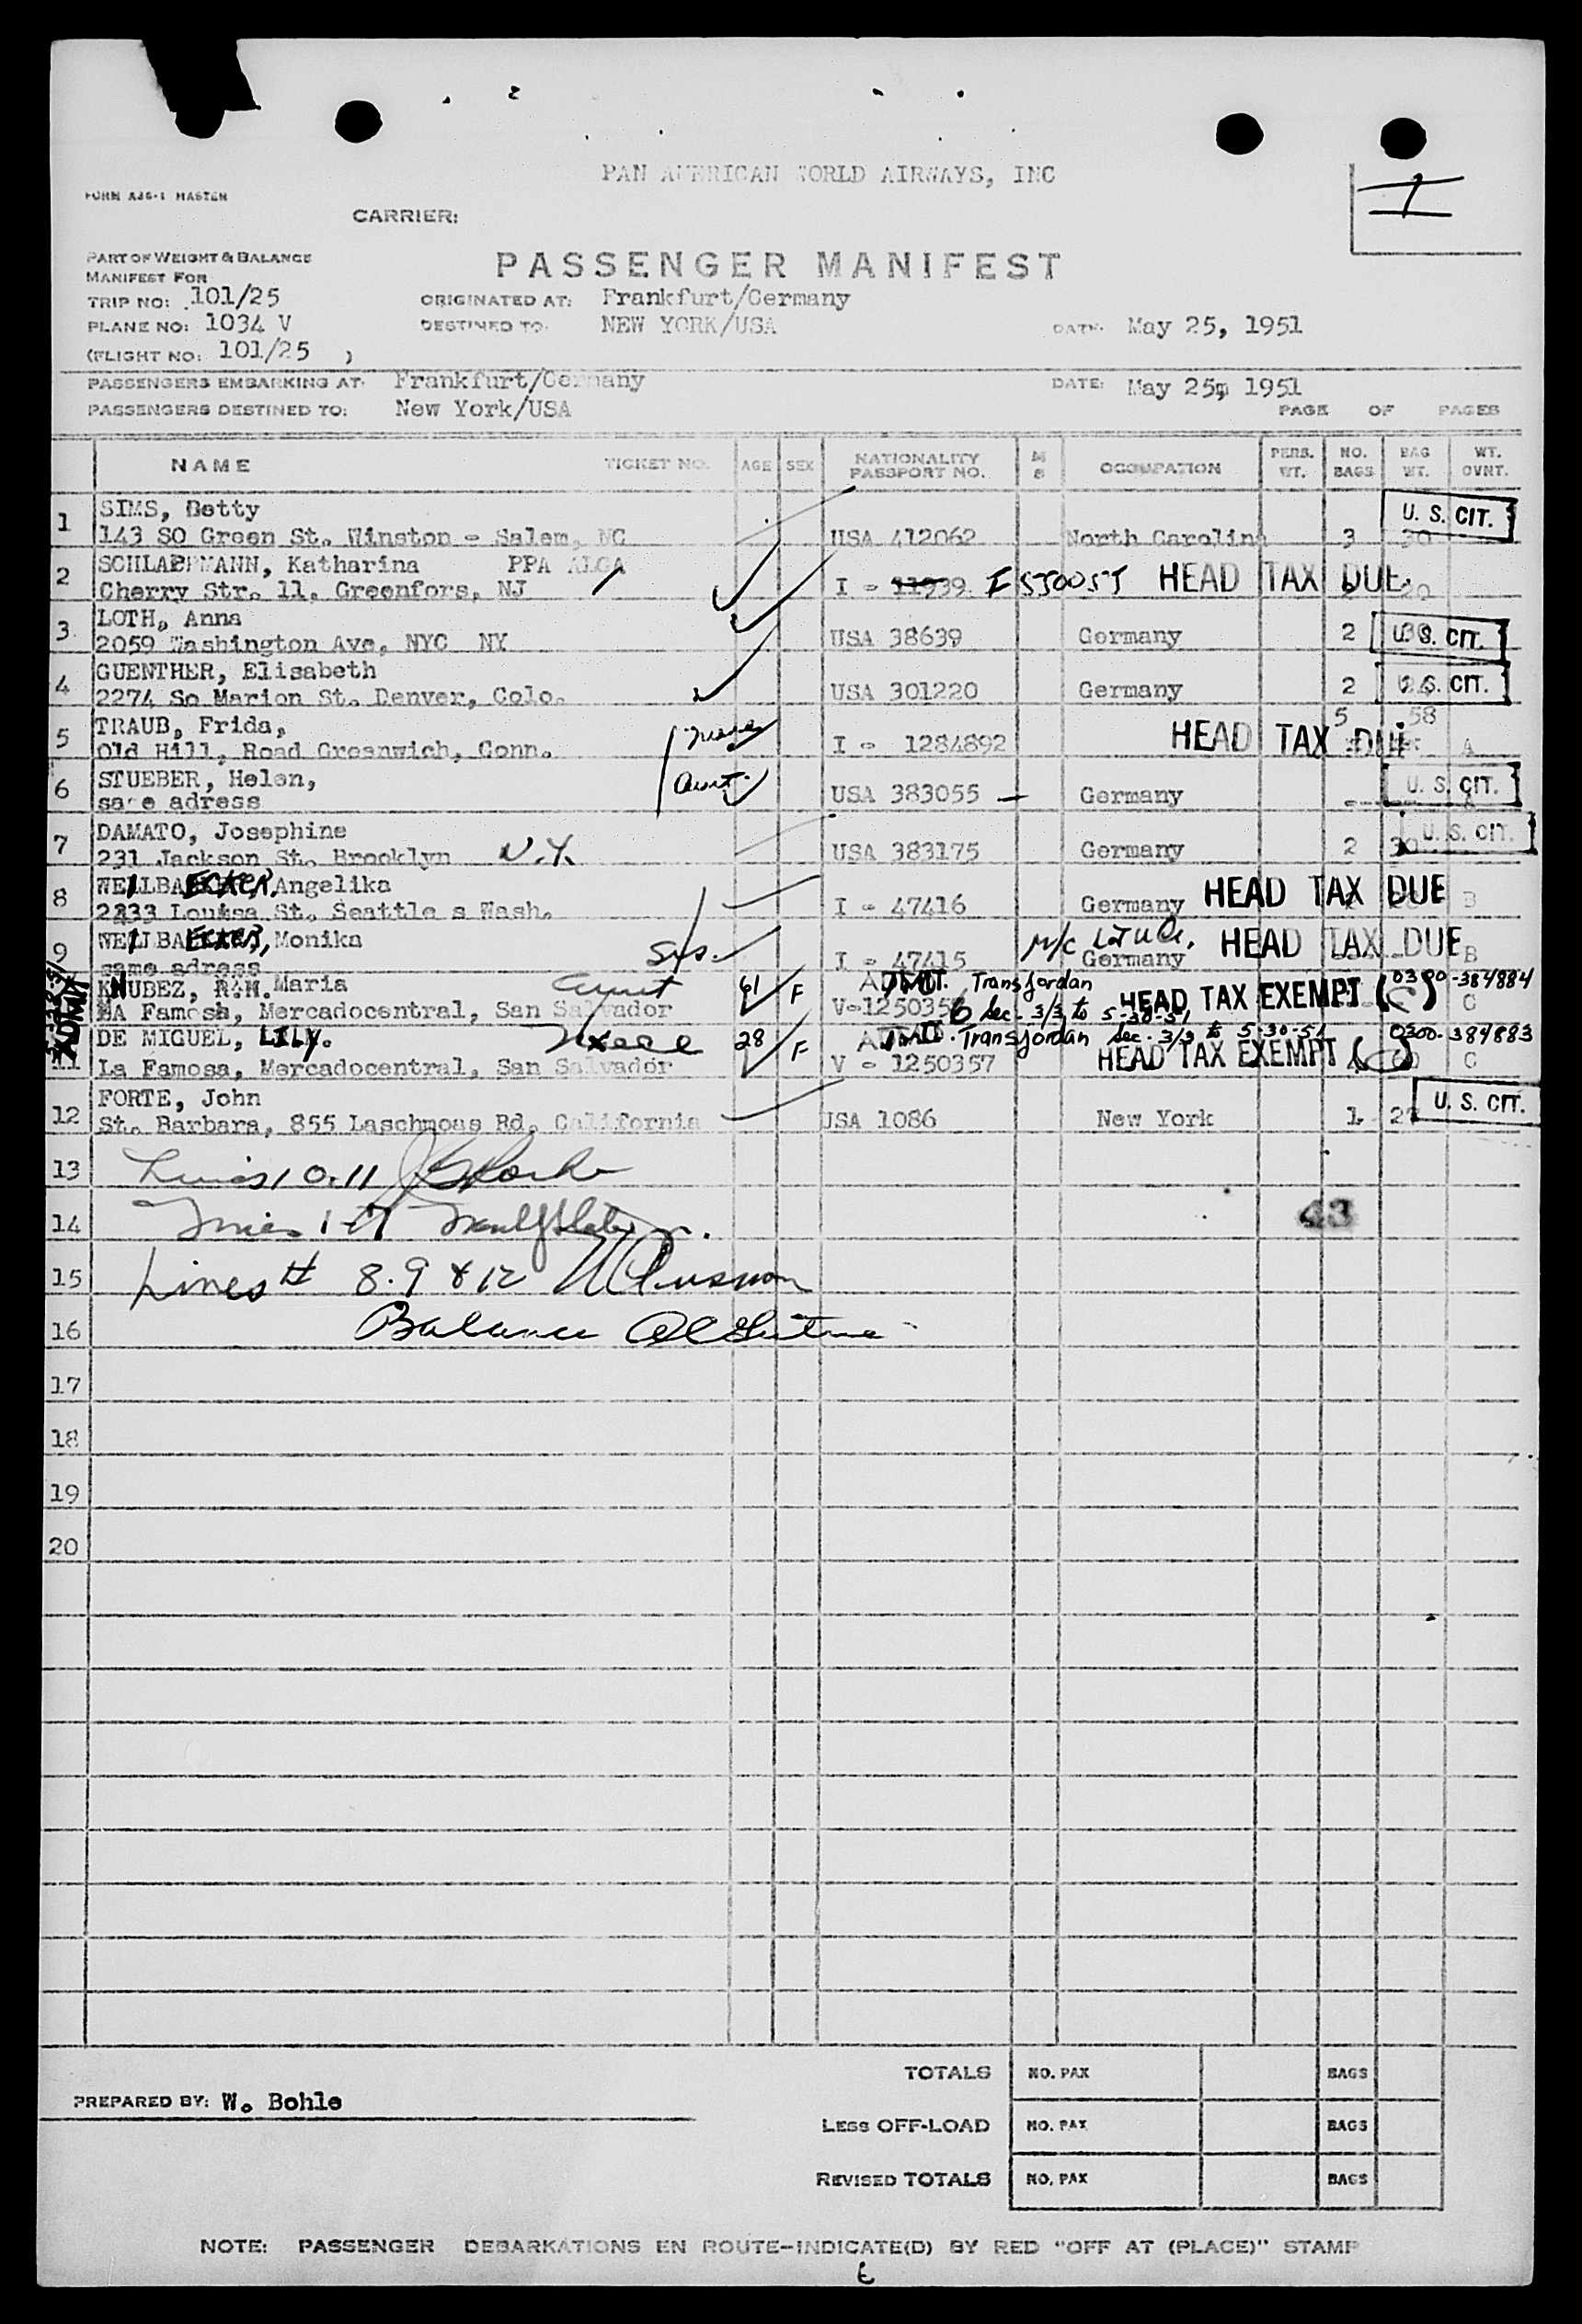 PAN AMERICAN WORLD AIRWAYS, INC
FORM A36-1 MASTER
CARRIER:
PART OF WEIGHT & BALANCE
MANIFEST FOR
PASSENGER MANIFEST
TRIP NO: 101/25 ORIGINATED AT: Frankfurt/Germany
PLANE NO: 1034 V DESTINED TO: NEW YORK/USA DATE: May 25, 1951
(FLIGHT NO: 101/25 )
PASSENGERS EMBARKING AT: Frankfurt/Germany DATE: May 25, 1951
PASSENGERS DESTINED TO: New York/USA PAGE OF PAGES
NAME TICKET NO. AGE SEX NATIONALITY PASSPORT NO. M S OCCUPATION PERS. WT. NO. BAGS BAG WT. WT. OVNT.
1 SIMS, Betty U. S. CIT.
143 SO Green St. Winston - Salem, NC USA 412062 North Carolina 3 30
2 SCHLAPPMANN, Katharina PPA ALGA
Cherry Str. 11, Greenfors, NJ I - 11939 I 550055 HEAD TAX DUE 20
3 LOTH, Anna
2059 Washington Ave, NYC NY USA 38639 Germany 2 U. S. CIT.
4 GUENTHER, Elisabeth
2274 So Marion St. Denver, Colo. USA 301220 Germany 2 U. S. CIT.
5 TRAUB, Frida, niece 5 58
Old Hill, Road Greenwich, Conn. I - 1284892 HEAD TAX DUE A
6 STUEBER, Helen, Aunt U. S. CIT.
same adress USA 383055 - Germany
7 DAMATO, Josephine U. S. CIT.
231 Jackson St. Brooklyn N.Y. USA 383175 Germany 2 30
8 WELLBAECKER, Angelika HEAD TAX DUE
2233 Louisa St. Seattle s Wash. I - 47416 Germany B
9 WELLBAECKER, Monika sis. HEAD TAX DUE
same adress I - 47415 Germany B
KNUBEZ, R.N. Maria Aunt 61 F ADMT. Transjordan 0300-384884
LA Famosa, Mercadocentral, San Salvador V-1250356 Sec. 3/3 to 5-30-51 HEAD TAX EXEMPT (C) C
DE MIGUEL, LILY. Niece 28 F Transjordan Sec. 3/3 to 5-30-51 0300-384883
11 La Famosa, Mercadocentral, San Salvador V - 1250357 HEAD TAX EXEMPT ( C ) 60 C
FORTE, John U. S. CIT.
12 St. Barbara, 855 Laschmoas Rd, California USA 1086 New York 1
13 Lines 10.11
14 Lines 1-7 43
15 Lines # 8.9 & 12
16 Balance
17
18
19
20
TOTALS NO. PAX BAGS
PREPARED BY: W. Bohle
LESS OFF-LOAD NO. PAX BAGS
REVISED TOTALS NO. PAX BAGS
NOTE: PASSENGER DEBARKATIONS EN ROUTE-INDICATE(D) BY RED "OFF AT (PLACE)" STAMP